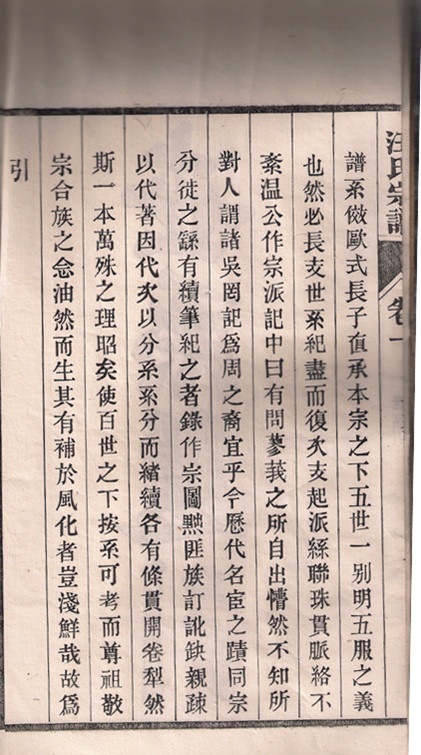 汪氏宗譜
卷一
譜系倣歐式長子直承本宗之下五世一别明五服之義
也然必長支世系紀盡而復次支起派絲聯珠貫脈絡不
紊温公作宗派記中曰有問蓼莪之所自出懵然不知所
對人謂諸吳罔記爲周之裔宜乎今歷代名宦之蹟同宗
分徙之繇有續筆紀之者錄作宗圖黦匪族訂訛缺親疎
以代著因代次以分系系分而緒續各有條貫開卷犁然
斯一本萬殊之理昭矣使百世之下按系可考而尊祖敬
宗合族之念油然而生其有補於風化者豈淺鮮哉故爲
引